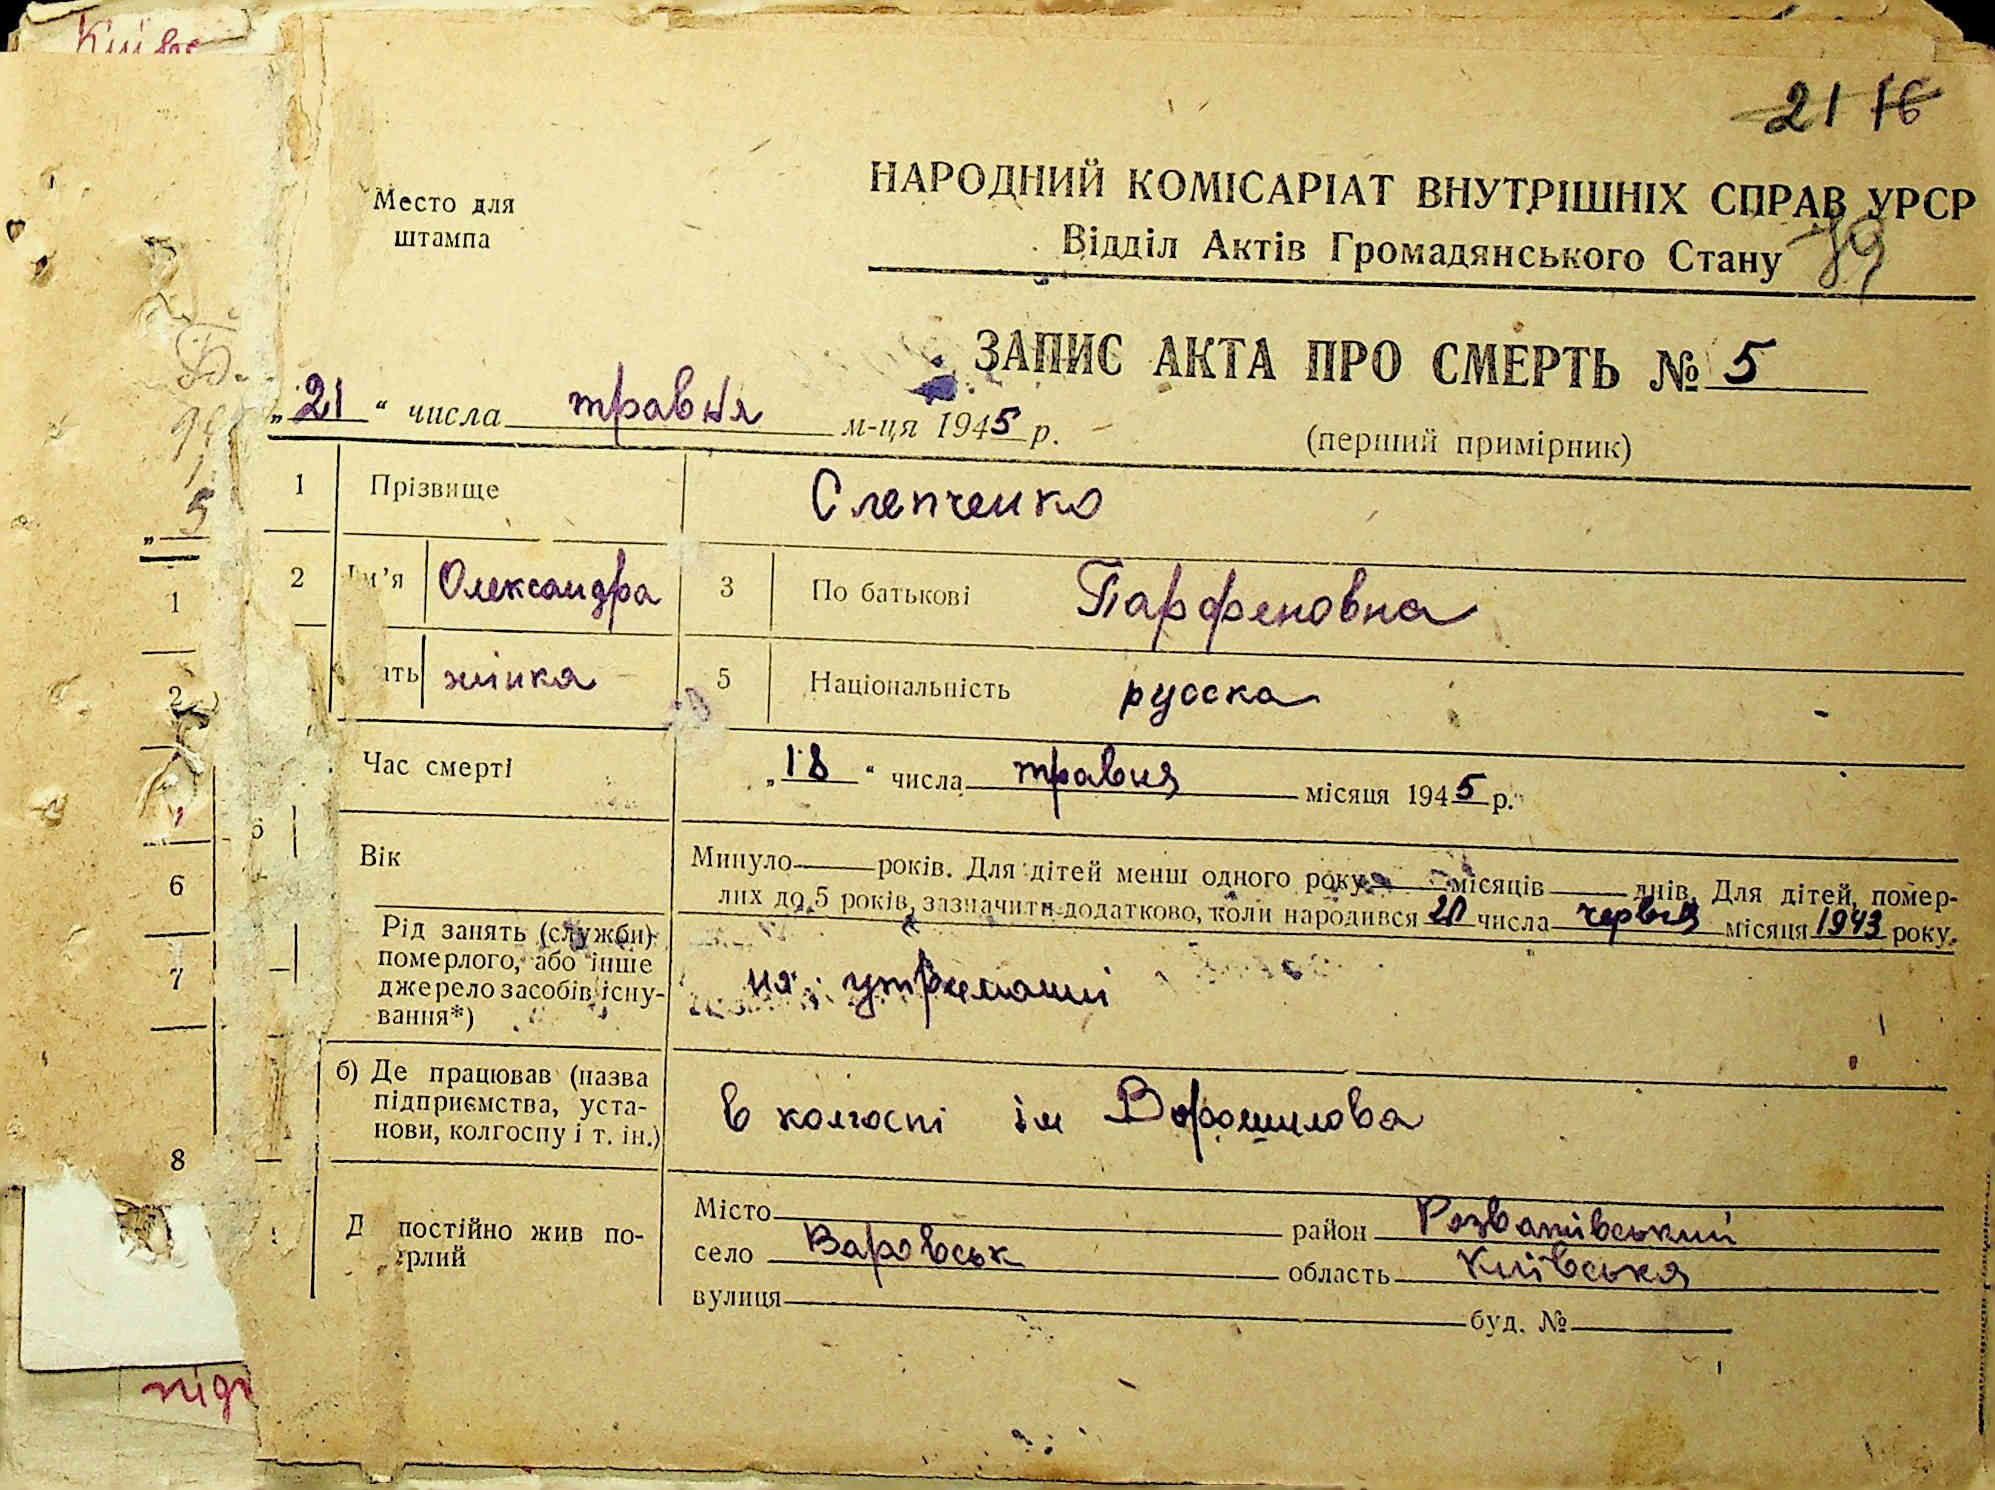 Київс
21 16
Место для
штампа
НАРОДНИЙ КОМІСАРІАТ ВНУТРІШНІХ СПРАВ УРСР
Відділ Актів Громадянського Стану
89
ЗАПИС АКТА ПРО СМЕРТЬ № 5
„21“ числа травня м-ця 1945 р.
(перший примірник)
1 Прізвище Слепченко
2 Ім’я Олександра 3 По батькові Парфеновна
ать жінка 5 Національність русска
Час смерті „18“ числа травня місяця 1945 р.
Вік Минуло років. Для дітей менш одного року місяців днів. Для дітей, помер-
лих до 5 років, зазначити додатково, коли народився 20 числа червня місяця 1943 року.
Рід занять (служби)
померлого, або інше
джерело засобів існу-
вання*)
на утриманні
б) Де працював (назва
підприємства, уста-
нови, колгоспу і т. ін.)
в колгоспі ім Ворошилова
Д постійно жив по-
ерлий
Місто район Розважівський
село Варовськ область Київська
вулиця буд. №
5
1
2
6
7
8
підп